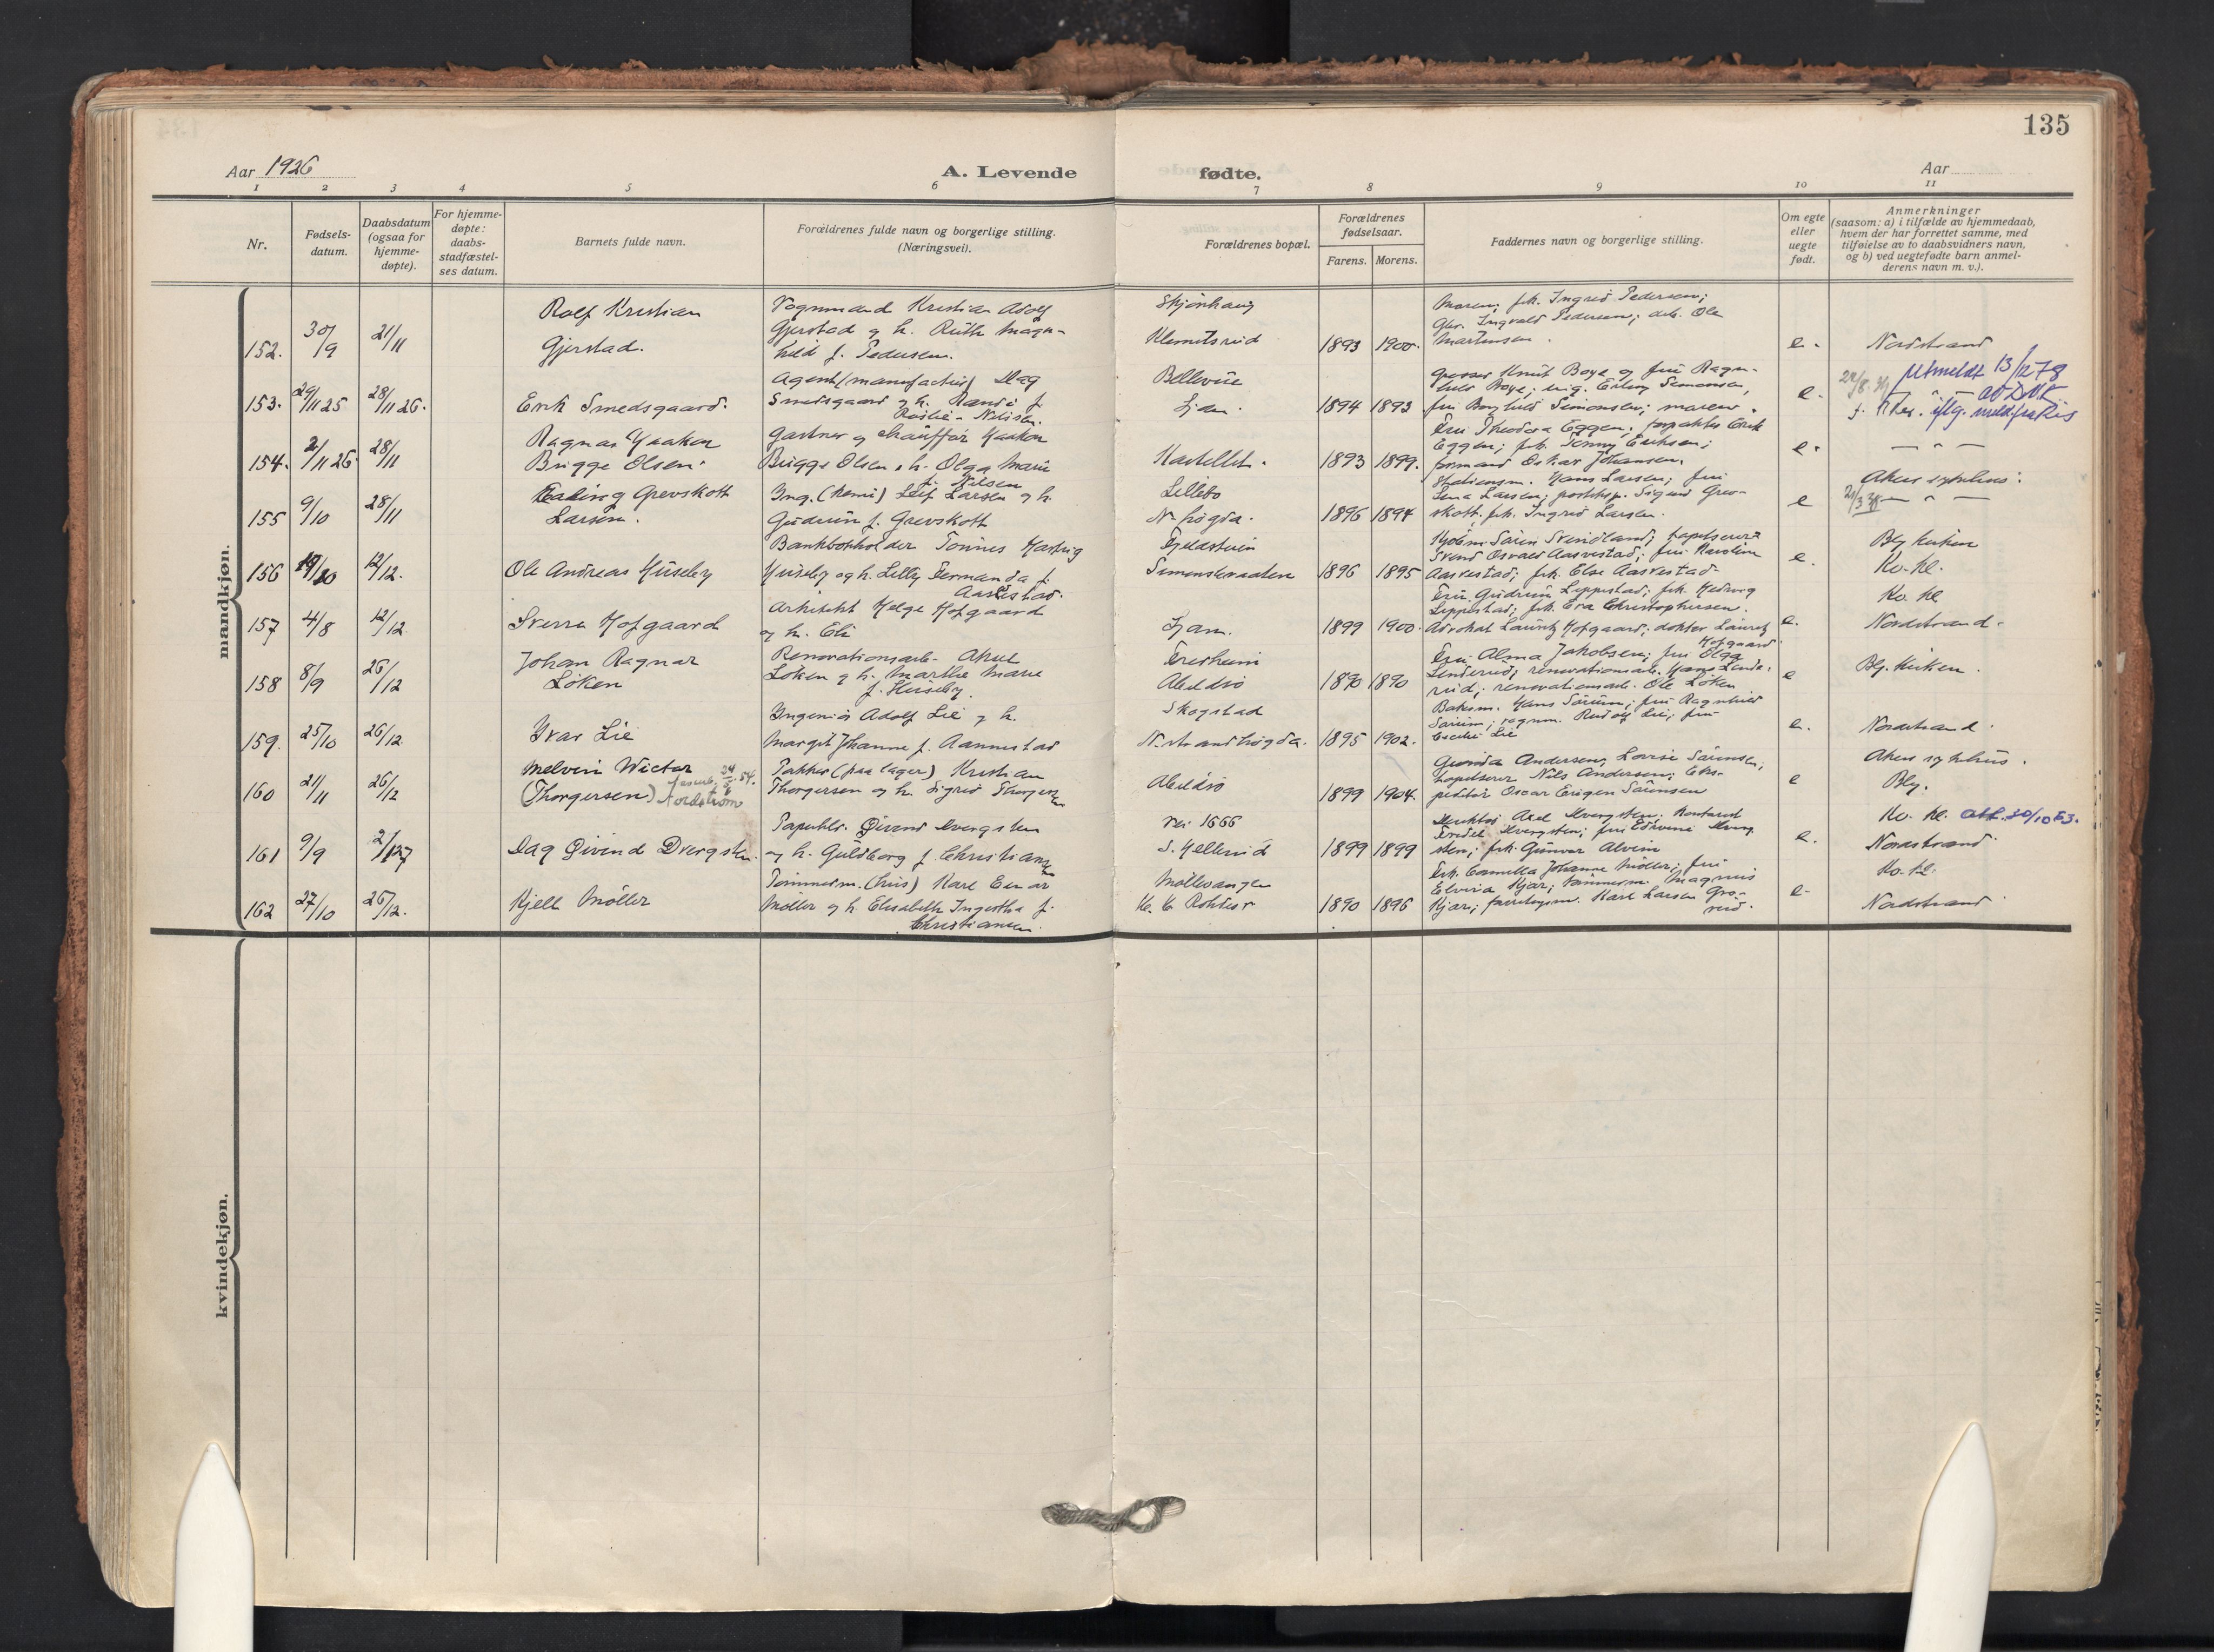 135
Aar 1926
A. Levende
fødte.
Aar
1 2 3 4 5 6 7 8 9 10 11
Nr.
Fødsels-
datum.
Daabsdatum
(ogsaa for
hjemme-
døpte).
For hjemme-
døpte:
daabs-
stadfæstel-
ses datum.
Barnets fulde navn.
Forældrenes fulde navn og borgerlige stilling.
(Næringsvei).
Forældrenes bopæl.
Forældrenes
fødselsaar.
Farens. Morens.
Faddernes navn og borgerlige stilling.
Om egte
eller
uegte
født.
Anmerkninger
(saasom: a) i tilfælde av hjemmedaab,
hvem der har forrettet samme, med
tilføielse av to daabsvidners navn,
og b) ved uegtefødte barn anmel-
derens navn m. v.).
mandkjøn.
152. 30/9 21/11
Rolf Kristian
Gjerstad.
Vognmand Kristian Adolf
Gjerstad og h. Ruth Magn-
hild f. Pedersen.
Skjønhaug
Klemetsrud
1893 1900.
Moren; frk. Ingrid Pedersen;
Gbr. Ingvald Pedersen; arb. Ole
Martinsen.
e.
Nordstrand
153. 29/11 25 28/11 26.
Erik Smedsgaard.
Agent (manufactur) Dag
Smedsgaard og h. Randi f.
Røslie-Nilsen.
Bellevue
Ljan.
1894 1893
Grosser Knut Boye og fru Ragn-
hild Boye; Erling Simonsen,
fru Borghild Simonsen; moren.
e.
utmeldt 13/12 78
av DNK
iflg. meld fra Ris
154. 2/11 26. 28/11
Ragnar Haakon
Brigge Olsen.
Gartner og chauffør Haakon
Brigge Olsen, h. Olga Marie
f. Nilsen
Kastellet.
1893 1899.
Fru Theodora Eggen; forpakter Erik
Eggen; frk. Jenny Eriksen;
formand Oskar Johansen.
e.
— " —
155 9/10 28/11
Erling Grevskott
Larsen.
Ing. (kemi) Leif Larsen og h.
Gudrun f. Grevskott
Lillebo
N. høgda.
1896 1894
Stationsm. Hans Larsen; fru
Lena Larsen; Sigurd Grev-
skott. frk. Ingrid Larsen.
e
Akers sykehus.
— " —
156 19/10 12/12.
Ole Andreas Huseby
Bankbokholder Tønnes Hartvig
Huseby og h. Lilly Fernanda f.
Aasvestad.
Fjeldstuen
Simensbraaten
1896 1895
Søren Svendland;
Svend Osvald Aasvestad; fru Karoline
Aasvestad; frk. Else Aasvestad
e.
Bly kirken
Ko. kl.
157 4/8 12/12.
Sverre Hofgaard
Arkitekt Helge Hofgaard
og h. Eli
Ljan.
1899 1900.
Fru Gudrun Lippestad; frk. Hedvig
Lippestad; frk. Eva Christophersen.
Advokat Lauritz Hofgaard; doktor Lauritz
Hofgaard
e.
Ko. kl
Nordstrand.
158 8/9 26/12
Johan Ragnar
Løken
Renovationsarb. Aksel
Løken og h. Marthe Marie
f. Huseby.
Fresheim
Abildsø
1890 1890
Fru Alma Jakobsen; fru Olga
Linderud; renovationsarb. Hans Linde-
rud; renovationsarb. Ole Løken
e
Bly. Kirken.
159. 25/10 26/12.
Ivar Lie
Ingeniør Adolf Lie og h.
Margit Johanne f. Aannestad
Skogstad
N. strandhøgda.
1895 1902.
Hans Sørum; fru Ragnhild
Sørum; vognm. Rudolf Lie; fru
Cecilie Lie
e.
Nordstrand
160 21/11 26/12
Melvin Wictor
(Thorgersen) Nordstrøm
Pakker (paa lager) Kristian
Thorgersen og h. Sigrid Thorgersen
Abildsø
1899 1904.
Gunda Andersen, Lovise Sørensen;
Nils Andersen; Eks-
peditør Oscar Eugen Sørensen
e
Akers sykehus.
Bly.
161 9/9 2/1 27
Dag Øivind Dvergsten.
Papirhlr. Øivind Dvergsten
og h. Guldborg f. Christiansen
Vei 1666
S. Hellerud
1899 1899
Direktør Axel Dvergsten; Kontorist
Fredel Dvergsten; fru Edvine Dverg-
sten; frk. Gunvor Alvein
e.
Ko. kl. att. 20/10 53.
Nordstrand
162 27/10 26/12.
Kjell Møller
Tømmerm. (hus) Karl Einar
Møller og h. Elisabeth Ingertha f.
Christiansen.
Møllevangen
1890 1896
Frk. Camilla Johanne Møller; fru
Elvira Kjær; tømmerm. Magnus
Kjær; Karl Larsen Gro-
rud.
e.
Ko. kl.
Nordstrand
kvindekjøn.